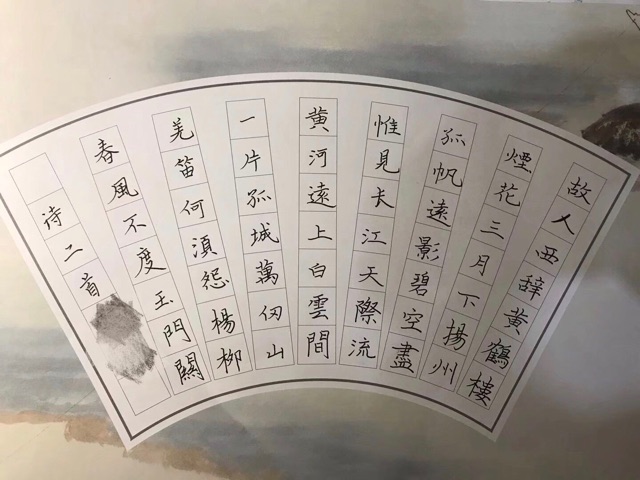 故人西辞黄鶴樓
煙花三月下揚州
孤帆遠影碧空盡
惟見长江天際流
黄河遠上白雲間
一片孤城萬仞山
羌笛何須怨楊柳
春風不度玉門關
诗二首